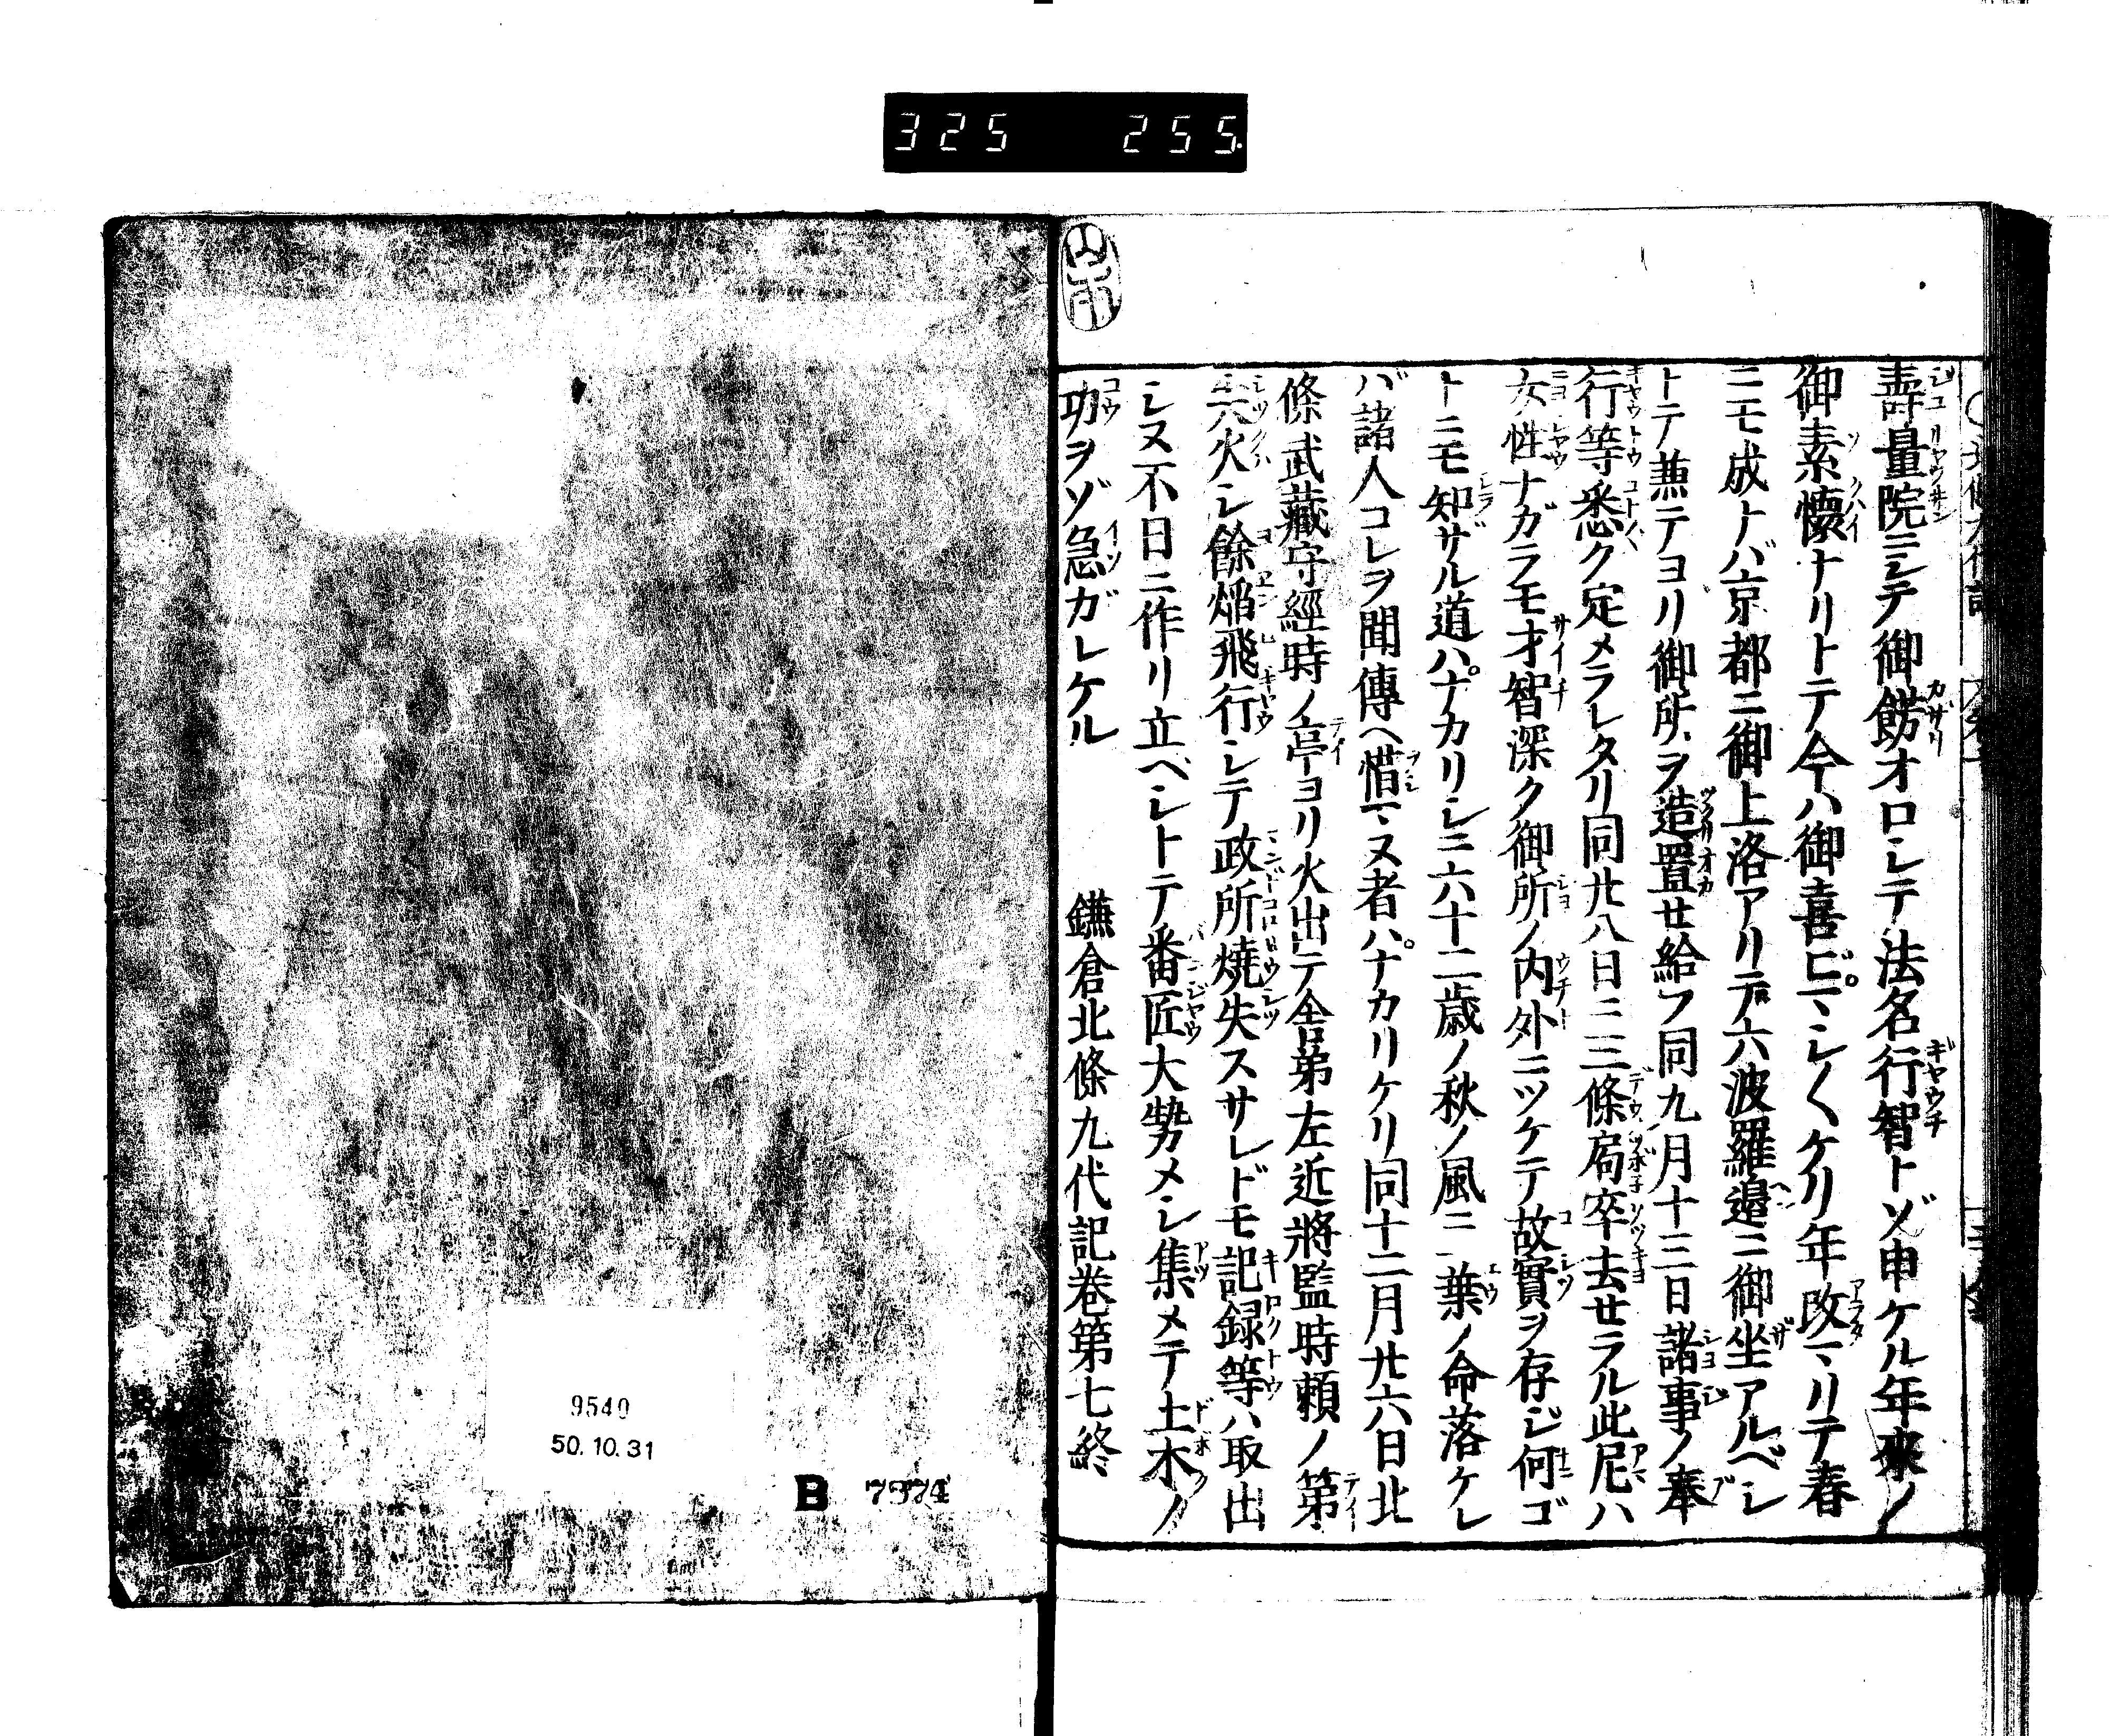 325 255
壽量院ニシテ御餝オロシテ法名行智トゾ申ケル年來ノ
御素懷ナリトテ今ハ御喜ビマシ〱ケリ年改マリテ春
ニモ成ナバ京都ニ御上洛アリテ六波羅邉ニ御坐アルベシ
トテ兼テヨリ御所ヲ造置せ給フ同九月十三日諸事ノ奉
行等悉ク定メラレタリ同廿八日ニ三條局卒去せラル此尼ハ
女性ナガラモ才智深ク御所ノ内外ニツケテ故實ヲ存ジ何ゴ
トニモ知ザル道ハナカリシニ六十二歳ノ秋ノ風ニ一葉ノ命落ケレ
バ諸人コレヲ聞傳ヘ惜マヌ者ハナカリケリ同十二月廿六日北
條武藏守經時ノ亭ヨリ火出テ舎弟左近將監時頼ノ第
ニ失火シ餘焔飛行シテ政所燒失スサレドモ記録等ハ取出
シヌ不日ニ作リ立ベシトテ番匠大勢メシ集メテ土木ノ
功ヲゾ急ガレケル 鎌倉北條九代記巻第七終
9540
50.10.31
B 7974